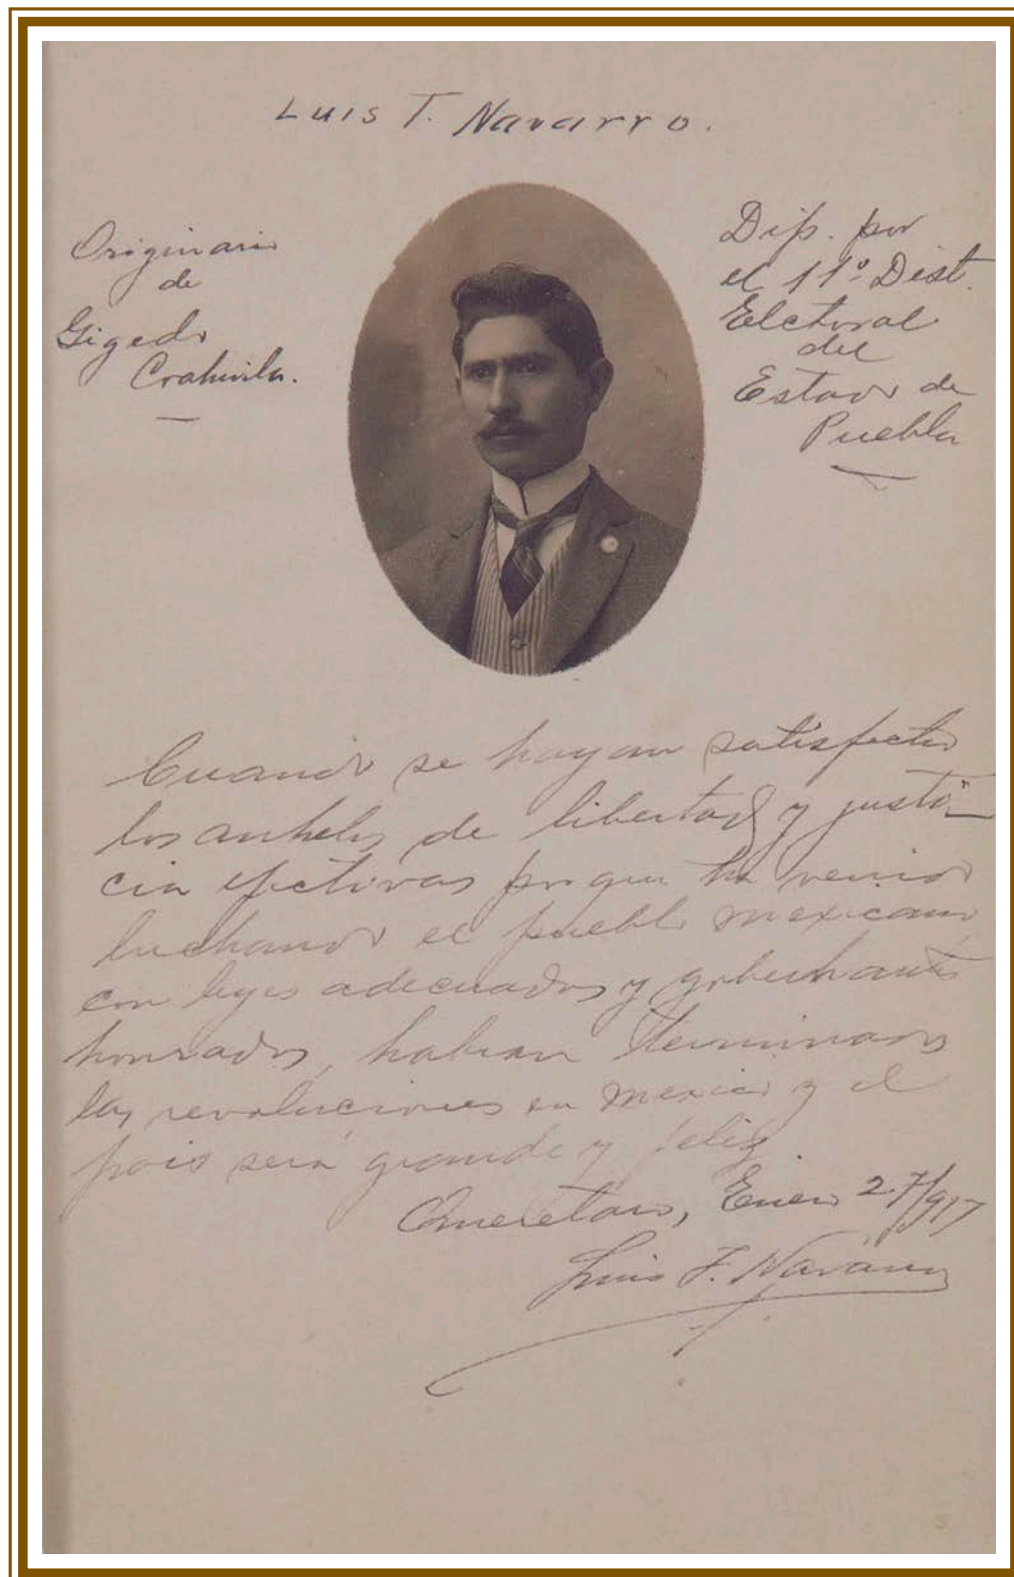 Luis T. Navarro.
Originario
de
Gigedo
Coahuila.
Dip. por
el 11º Dist.
Electoral
del
Estado de
Puebla
Cuando se hayan satisfecho
los anhelos de libertad y justi-
cia efectivas porque ha venido
luchando el pueblo mexicano,
con leyes adecuadas y gobernantes
honrados, habran terminado
las revoluciones en Mexico y el
pais será grande y feliz.
Queretaro, Enero 27/917
Luis T. Navarro